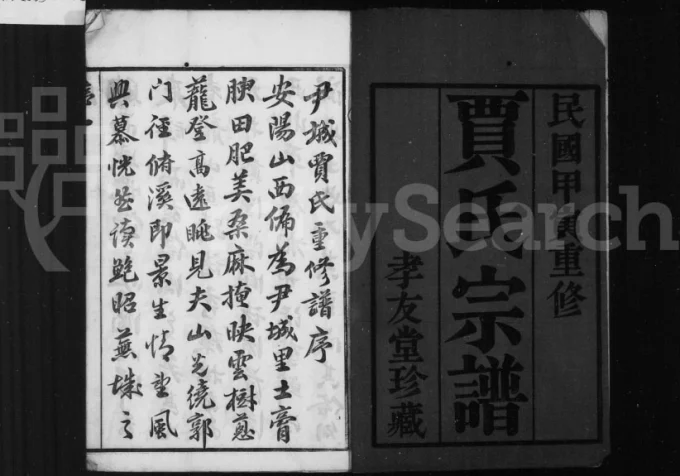 民國甲寅重修
賈氏宗譜
孝友堂珍藏
尹城賈氏重修譜序
安陽山西偏為尹城里土膏
腴田肥美桑麻掩映雲樹蔥
蘢登高遠眺見夫山光繞郭
门徑俯溪即景生情望風
興慕恍然讀鮑昭蕪城之
序 一
MySearch